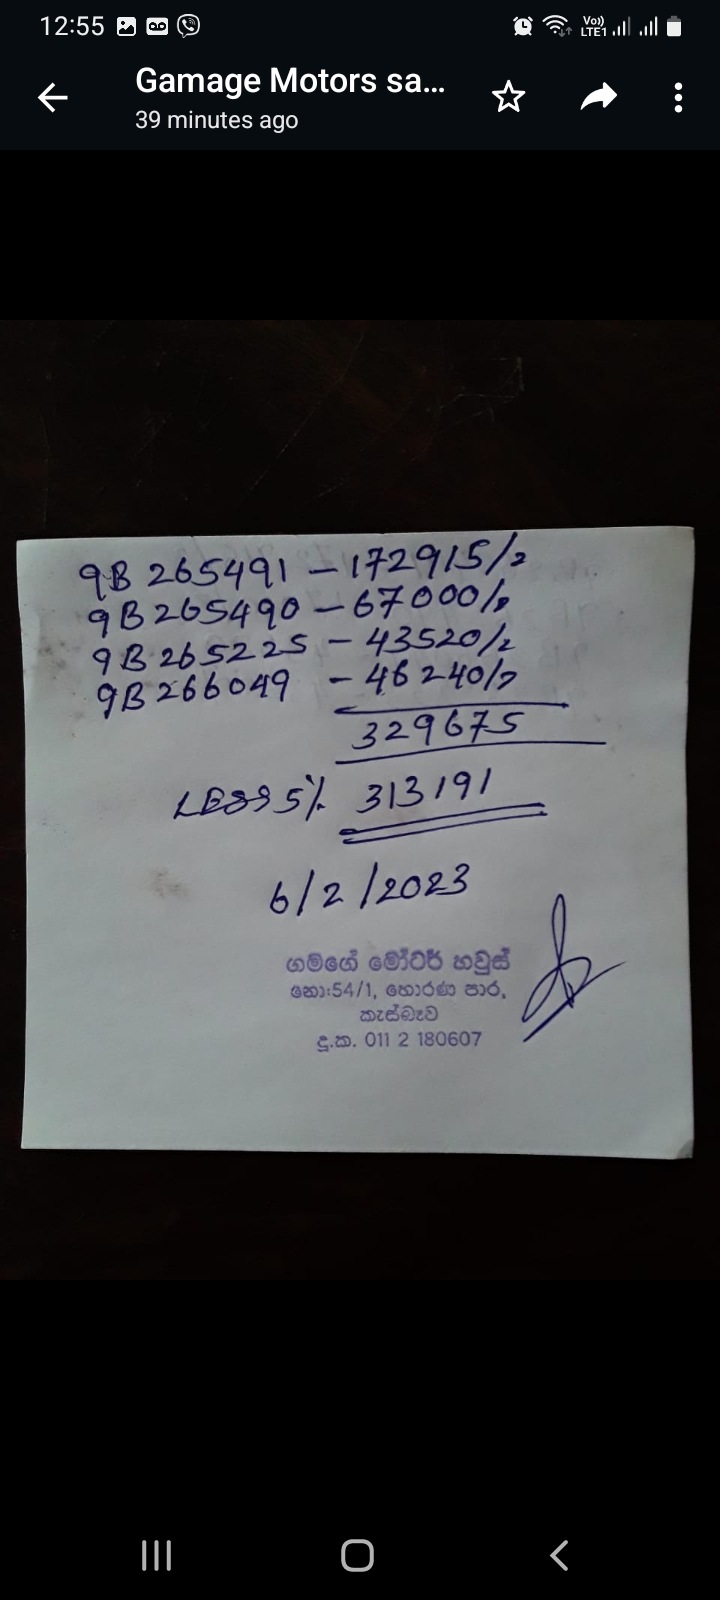 12:55
Vo)) LTE1
Gamage Motors sa...
39 minutes ago
9B 265491 – 172915/2
9B 265490 – 67000/2
9B 265225 – 43520/2
9B 266049 – 46240/2
329675
LESS 5% 313191
6/2/2023
ගමගේ මෝටර් හවුස්
නො:54/1, හොරණ පාර,
කැස්බෑව
දු.ක. 011 2 180607